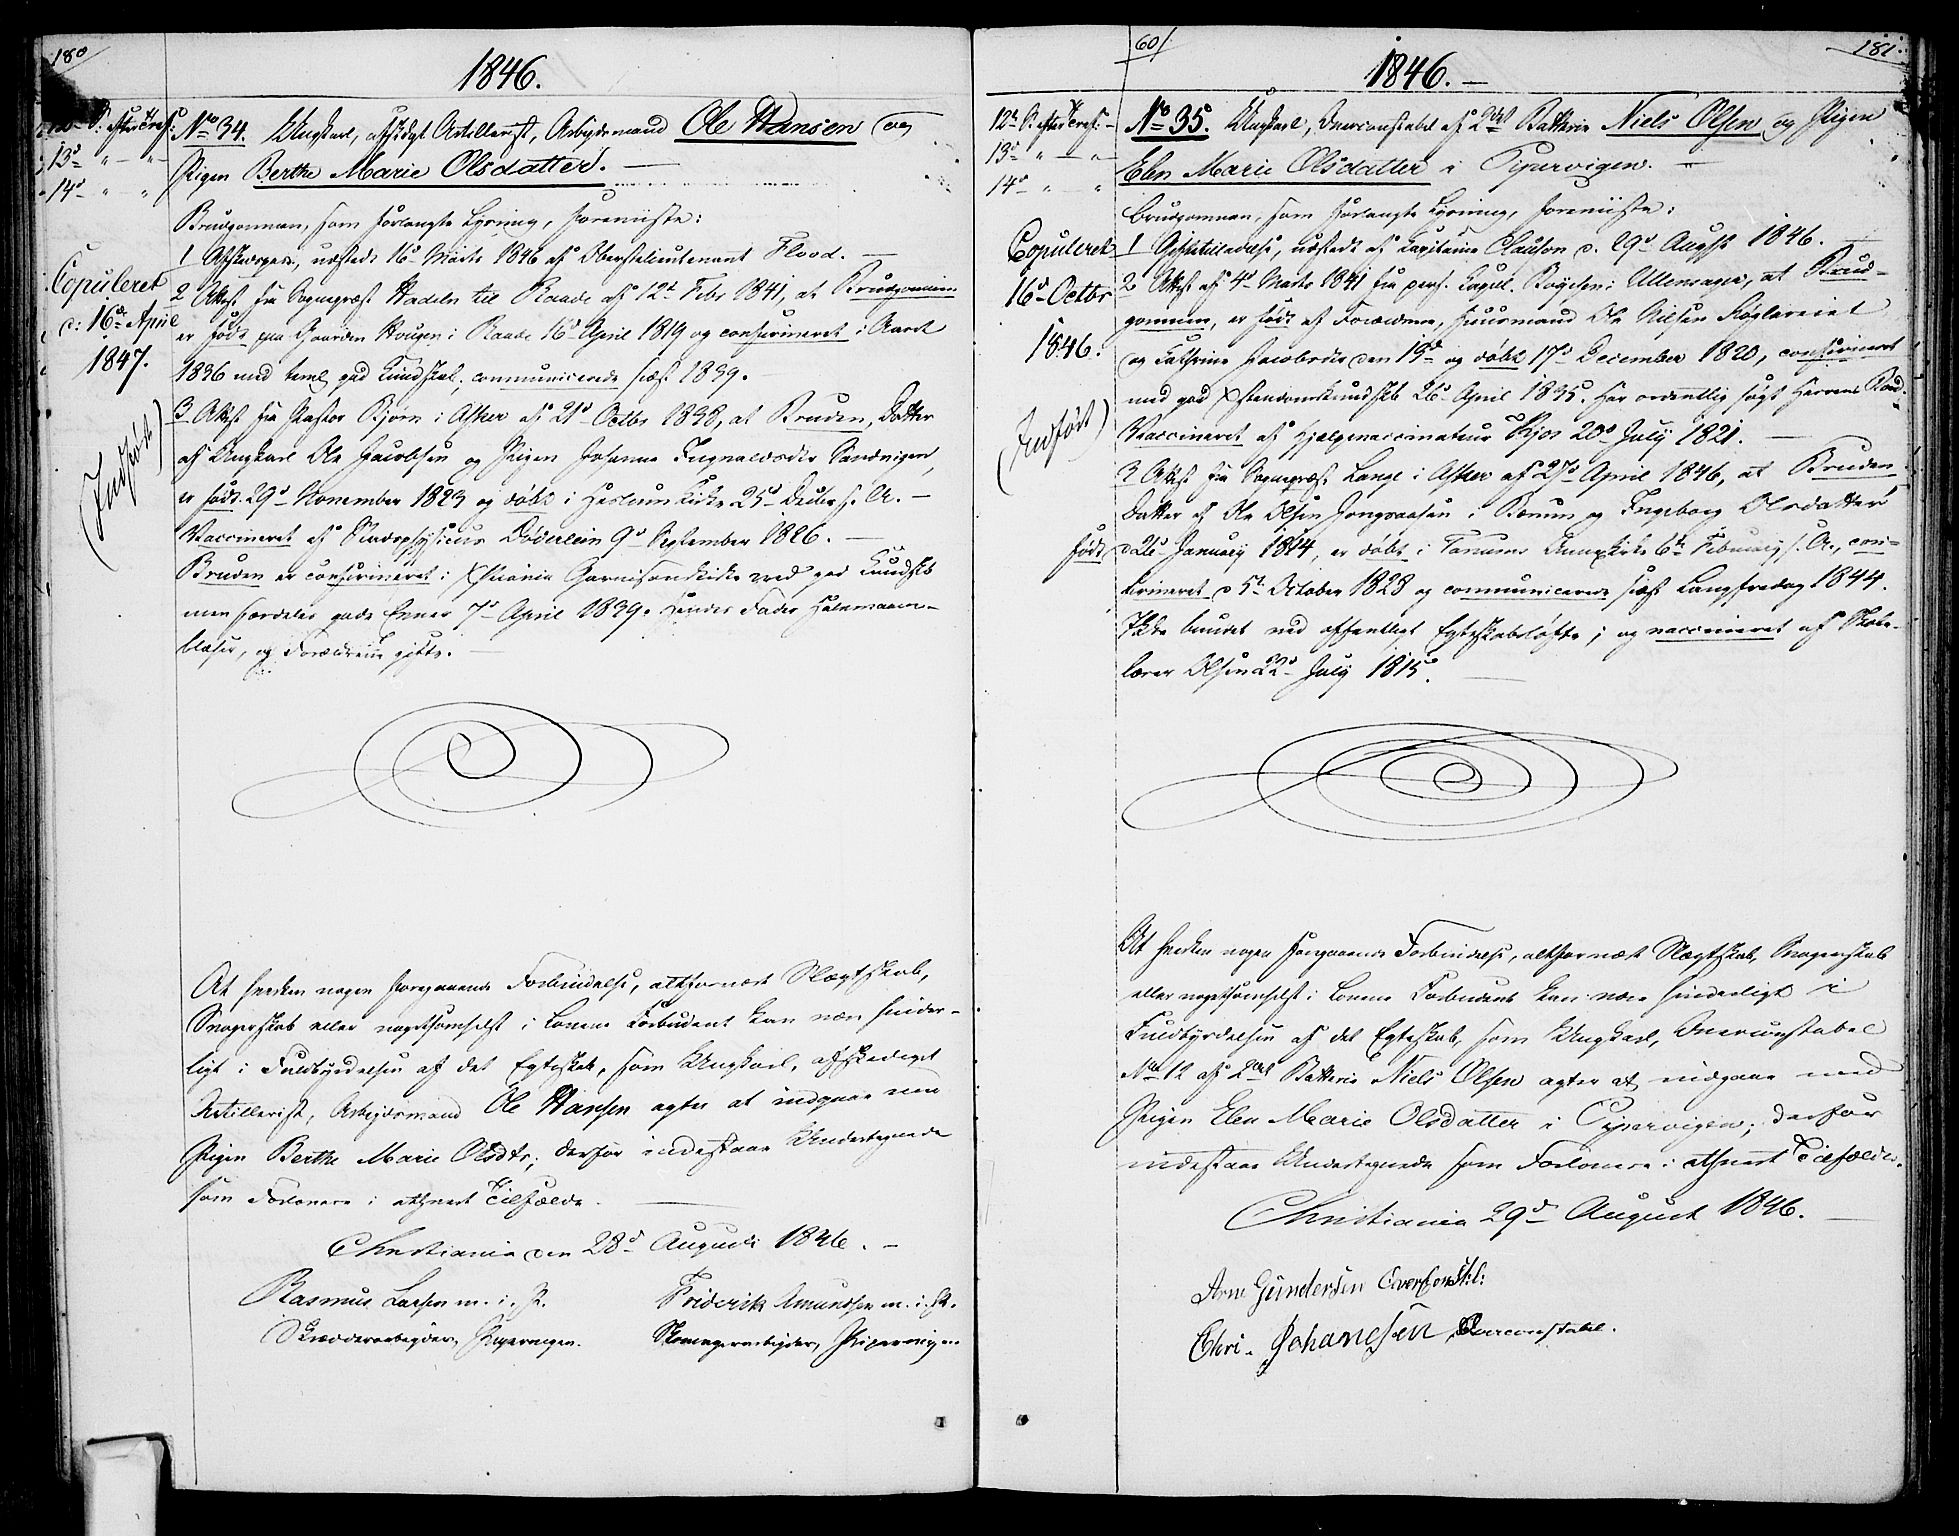 180
1846.
12te S. efter Tref:
13d " — " —
14d " — "
No 34. Ungkarl, afskediget Artillerist, Arbeidsmand Ole Hansen og
Pigen Berthe Marie Olsdatter. —
Brudgommen, som forlangte Lysning, foreviiste:
1 Afskedspas, udstedt 16d Marts 1846 af Oberstelieutenant Flood. —
2 Attest fra Sognepræst Hadeln til Raade af 12te Febr 1841, at Brudgommen
er født paa Gaarden Hougen i Raade 16d April 1819 og confirmeret i Aaret
1836 med temlig god Kundskab, communicerede sidst 1839.
3 Attest fra Pastor Bjørn i Asker af 21d Octbr 1838, at Bruden, Datter
af Ungkarl Ole Jacobsen og Pigen Johanne Sandvigen,
er født 29d November 1823 og døbt i Haslum Kirke 25d s. A. —
Vaccineret af Stadsphysicus Døderlein 9d September 1826. —
Bruden er confirmeret i Xstiania Garnisonskirke med god Kundskab
men særdeles gode Evner 7d April 1839. Hendes Fader
blæser, og Forældrene gifte. —
Copuleret
d: 16de April
1847.
(Indført)
At hverken nogen foregaaende Forbindelse, altfornært Slægtskab,
Svogerskab eller nogetsomhelst i Lovene Forbudent kan være hinder-
ligt i Fuldbyrdelsen af det Egteskab, som Ungkarl, afskediget
Artillerist, Arbeidsmand Ole Hansen agter at indgaae med
Pigen Berthe Marie Olsdtr; derfor indestaae Undertegnede
som Forlovere i ethvert Tilfælde. —
Christiania den 28d August 1846. —
Rasmus Larsen m. i. P.
Skrædderarbeider, Pipervigen.
Friderik Amundsen m. i. P.
Skomagerarbeider, Pipervigen
60/
181.
1846. —
12te S. efter Tref: —
13d " — " —
14d " — "
No 35. Ungkarl, Overconstabel af 2det Batterie Niels Olsen og Pigen
Elen Marie Olsdatter i Pipervigen. —
Brudgommen, som forlangte Lysning, foreviiste:
1 Giftetilladelse, udstedt af Capitaine Clauson d. 29d August 1846. —
2 Attest af 4d Marts 1841 fra pers. Capel. Boysen i Ullensager, at Brud-
gommen, er født af Forældrene, Huusmand Ole Nilsen
og Cathrine Jacobsdtr den 13d og døbt 17d December 1820, confirmeret
med god Xstendomskundskb 26d April 1835. Har ordentlig søgt Herrens Bord.
Vaccineret af Hjelpevaccinateur Kjos 20d July 1821. —
3 Attest fra Sognepræst Lange i Asker af 27d April 1846, at Bruden
Datter af Ole Olsen i Bærum og Ingeborg Olsdatter
født d 26d January 1814, er døbt i Tanums Annexkirke 6te February s. A., con-
firmeret d 5te October 1828 og communicerede sidst Langfredag 1844.
Ikke bundet ved offentligt Egteskabsløfte; og vaccineret af Skole-
lærer Olsen 22d July 1815. —
Copuleret
16d Octbr
1846.
(Indført)
At hverken nogen foregaaende Forbindelse, altfornært Slægtskab, Svogerskab
eller nogetsomhelst i Lovene Forbudent kan være hinderligt i
Fuldbyrdelsen af det Egteskab, som Ungkarl, Overconstabel
No 12 af 2det Batterie Niels Olsen agter at indgaae med
Pigen Elen Marie Olsdatter i Pipervigen; derfor
indestaae Undertegnede som Forlovere i ethvert Tilfælde.
Christiania 29d August 1846. —
Arne Gundersen Overconst:l:
Chri. Johanesen, Overconstabel.